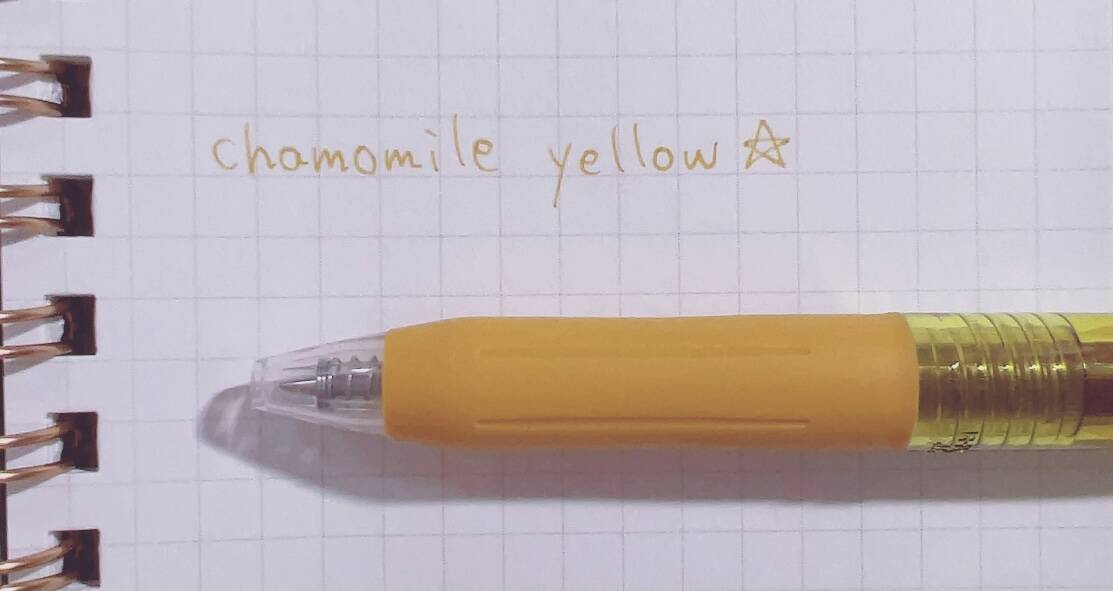 chamomile yellow ☆